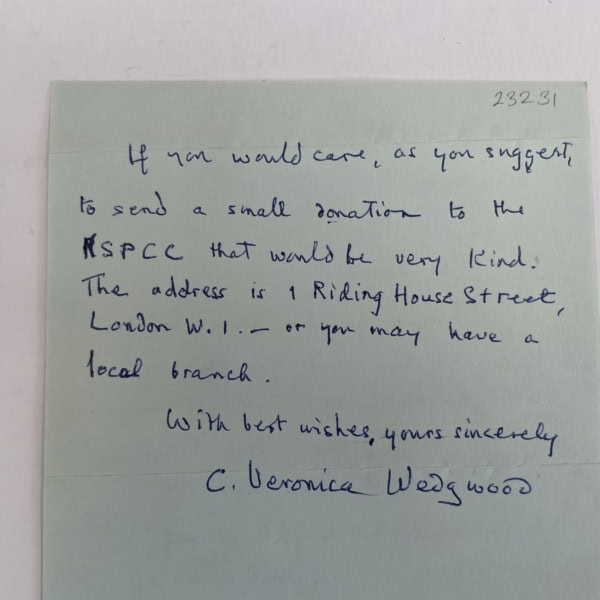 23231
If you would care, as you suggest,
to send a small donation to the
NSPCC that would be very kind.
The address is 1 Riding House Street,
London W.1. — or you may have a
local branch.
With best wishes, yours sincerely
C. Veronica Wedgwood